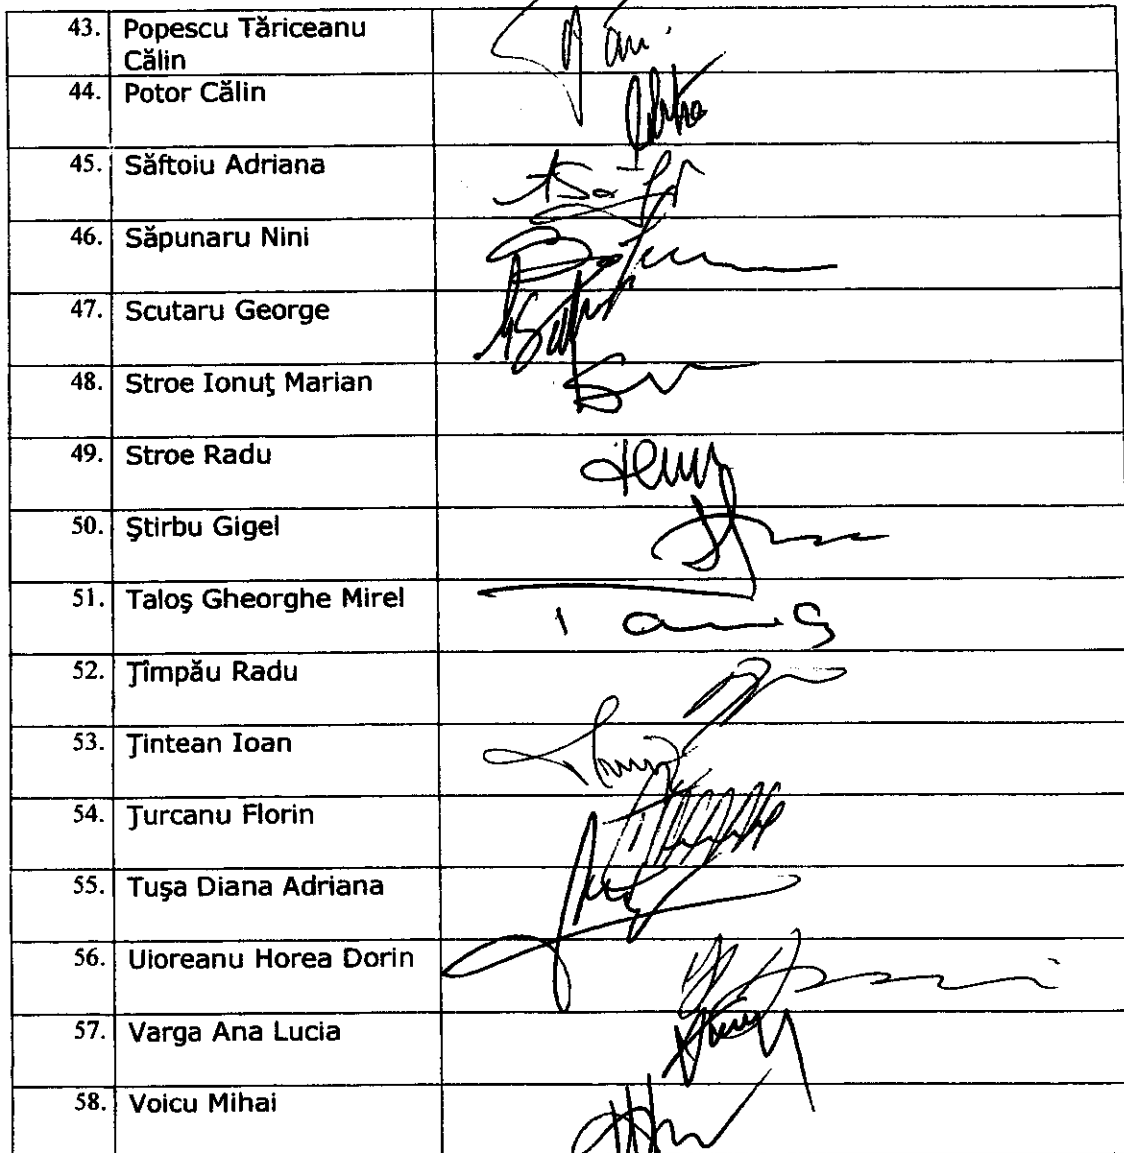 43. Popescu Tăriceanu
Călin
44. Potor Călin
45. Săftoiu Adriana
46. Săpunaru Nini
47. Scutaru George
48. Stroe Ionuţ Marian
49. Stroe Radu
50. Ştirbu Gigel
51. Taloş Gheorghe Mirel
52. Ţîmpău Radu
53. Ţintean Ioan
54. Ţurcanu Florin
55. Tuşa Diana Adriana
56. Uioreanu Horea Dorin
57. Varga Ana Lucia
58. Voicu Mihai